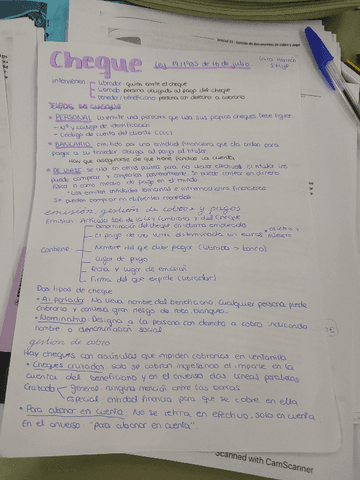 Cheque
Ley 19/1985 de 16 de julio
intervienen
Librador quien emite el cheque
Librado persona obligada al pago del cheque
tenedor/beneficiario persona con derecho a cobrarlo
Tipos de cheques
• PERSONAL Lo emite una persona que usa sus propios cheques debe figurar
- Nº y código de identificación
- Código de cuenta del cliente (CCC)
• BANCARIO emitido por una entidad financiera que da orden para
pagar a su tenedor. Obliga al pago al titular
Hay que asegurarse de que tiene fondos la cuenta
• DE VIAJE se usa en otros países para no llevar efectivo.
puede comprar y
como medio de pago en el mundo
Los emiten entidades bancarias e intermediarios financieros
Se pueden comprar en diferentes monedas
emisión, gestión de cobros y pagos
Emisión Artículo de la Ley Cambiaria y del Cheque
contiene
Denominación del cheque en idioma empleado
El pago de una
Nombre del que debe pagar (librado → banco)
Lugar de pago
Fecha y lugar de emisión
Firma del que expide (librador)
Dos tipos de cheque
• Al portador No lleva nombre del beneficiario cualquier persona puede
cobrarlo y conlleva gran riesgo de robo,
• Nominativo Designa a la persona con derecho a cobro indicando
nombre o denominación social
gestión de cobro
Hay cheques con cláusulas que impiden cobrarlos en ventanilla
• Cheques cruzados solo se cobran ingresando el importe en la
cuenta del beneficiario y en el anverso dos líneas paralelas
Cruzado
general ninguna mención entre las barras
especial entidad financia para que se cobre en ella
• Para abonar en cuenta No se retira en efectivo, solo en cuenta
En el anverso "para abonar en cuenta"
Scanned with CamScanner